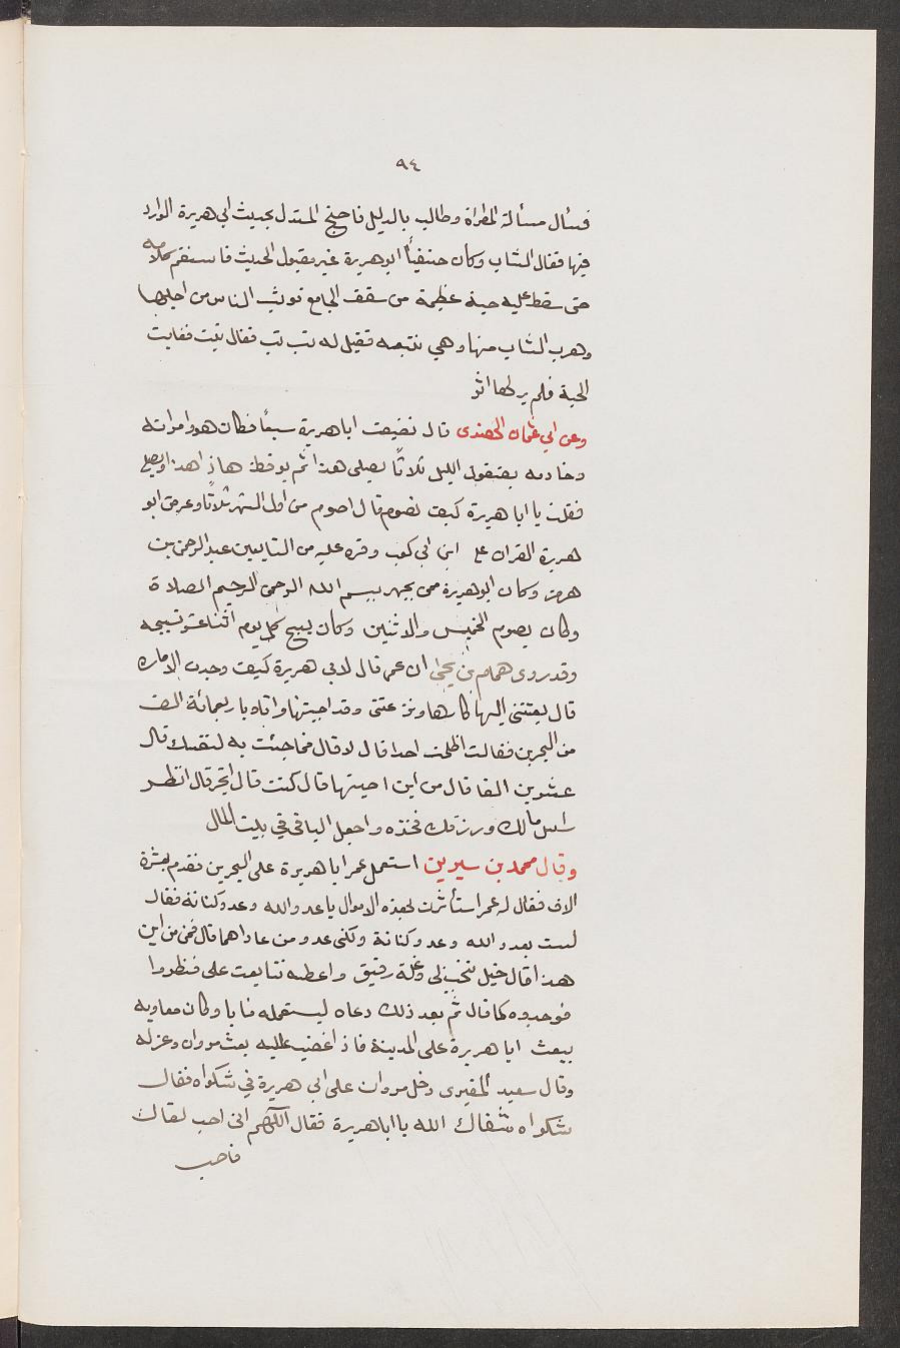 ٩٤
فسأل مسألة المطراة وطالب بالدليل فاحتج المستدل بحديث ابي هريرة الوارد
فيها فقال الشاب وكان حنفيا ابو هريرة غير مقبول الحديث فاستقم كلامه
حتى سقط عليه حية عظيمة من سقف الجامع فوثب الناس من اجلها
وهرب الشاب منها وهي تتبعه فقيل له تب تب فقال تبت فغابت
الحية فلم ير لها اثر
وعن ابي عثمان الهندى قال تضيفت ابا هريرة سبعاً فكان هو وامراته
وخادمه يعتقبون الليل ثلاثاً يصلى هذا ثم يوقظ هذا
فقلت يا ابا هريرة كيف تصوم قال اصوم من اول الشهر ثلاثا وعرض ابو
هريرة القران على ابن ابي كعب وقره عليه من التابعين عبد الرحمن بن
هرمز وكان ابو هريرة ممن يجهر ببسم الله الرحمن الرحيم الصلاة
وكان يصوم الخميس والاثنين وكان يسبح كل يوم اثنا عشر تسبيحه
وقد روى همام بن يحيى ان عمر قال لابي هريرة كيف وجدت الاماره
قال بعثتنى اليها كارها ونزعتنى وقد احببتها واتاه باربعمائة الف
من البحرين فقالت اظلمت احدا قال لا قال فما جئت به لنفسك قال
عشرين الفا قال من اين احبتها قال كنت قال اتجر قال انظر
راس مالك ورزقك فخذه واجعل الباقي في بيت المال
وقال محمد بن سيرين استعمل عمر ابا هريرة على البحرين فقدم بعشرة
الاف فقال له عمر استأثرت لهذه الاموال يا عدو الله وعدو كتابه فقال
لست بعدو الله وعدو كتابه ولكنى عدو من عاداهما قال فمن من اين
هذا قال خيل نتجت لى وغلة رقيق واعطيه تتابعت على فنظروا
فوجدوه كما قال ثم بعد ذلك دعاه ليستعمله فابا وكان معاويه
يبعث ابا هريرة على المدينة فاذا غضب عليه بعث مروان وعزله
وقال سعيد المقبرى دخل مروان على ابي هريرة في شكواه فقال
شكواه شفاك الله يا ابا هريرة فقال اللهم انى احب لقاك
فاحب